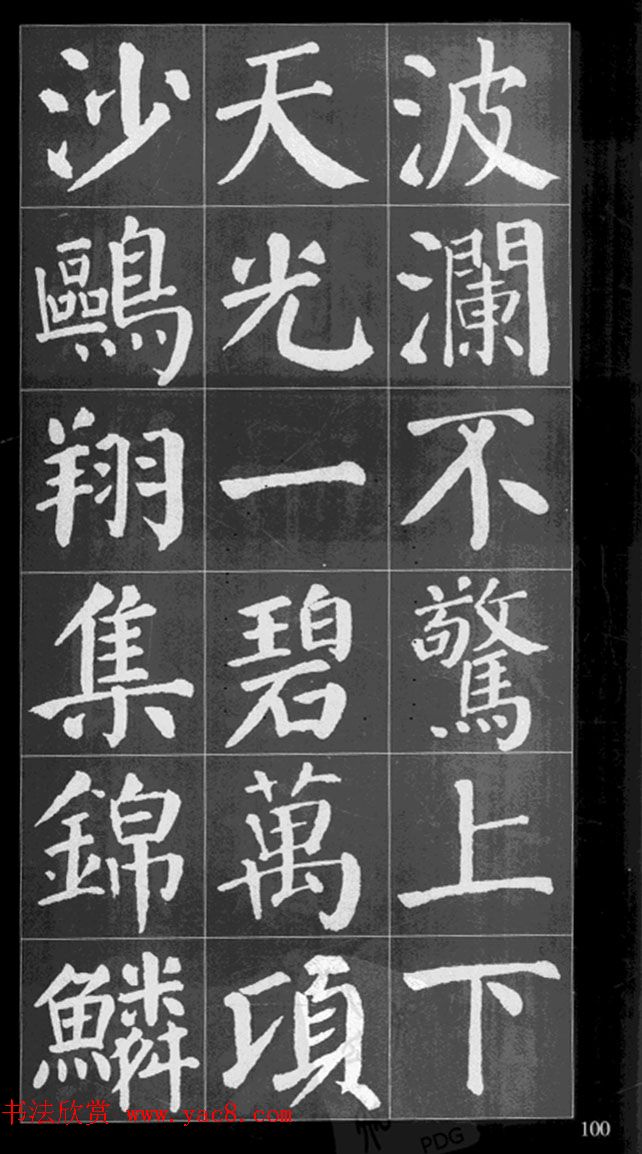 波瀾不驚上下
天光一碧萬頃
沙鷗翔集錦鱗
书法欣赏 www.yac8.com
100
PDG